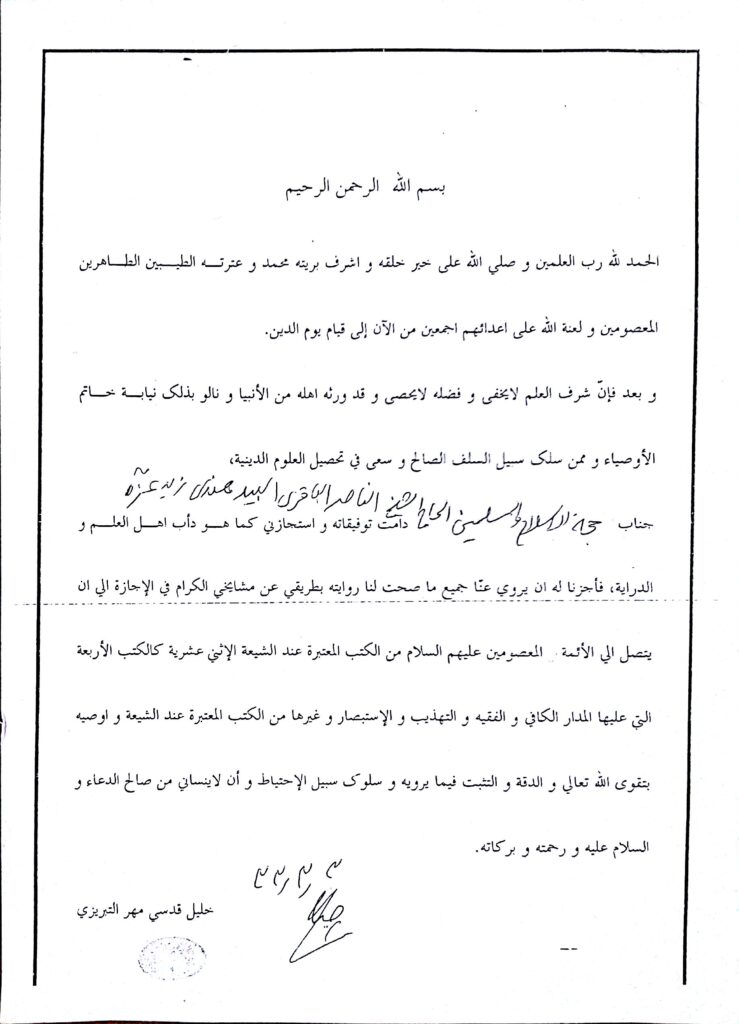 بسم الله الرحمن الرحيم
الحمد لله رب العلمين و صلي الله على خير خلقه و اشرف بريته محمد و عترتــه الطيــبين الطــاهرين
المعصومين و لعنة الله على اعدائهم اجمعين من الآن إلى قيام يوم الدين.
و بعد فإنّ شرف العلم لايخفى و فضله لايحصى و قد ورثه اهله من الأنبيا و نالو بذلک نيابــة خــاتم
الأوصياء و ممن سلک سبيل السلف الصالح و سعى في تحصيل العلوم الدينية،
حجة الاسلام والمسلمين الحاج الشيخ الناصر الباقري
جناب دامت توفيقاته و استجازني كما هــو دأب اهــل العلــم و
الدراية، فأجزنا له ان يروي عنّا جميع ما صحت لنا روايته بطريقي عن مشايخي الكرام في الإجازة الي ان
يتصل الي الأئمة المعصومين عليهم السلام من الكتب المعتبرة عند الشيعة الإثني عشرية كالكتب الأربعة
التي عليها المدار الكافي و الفقيه و التهذيب و الإستبصار و غيرها من الكتب المعتبرة عند الشيعة و اوصيه
بتقوى الله تعالي و الدقة و التثبت فيما يرويه و سلوک سبيل الإحتياط و أن لاينساني من صالح الدعاء و
السلام عليه و رحمته و بركاته.
خليل قدسي مهر التبريزي